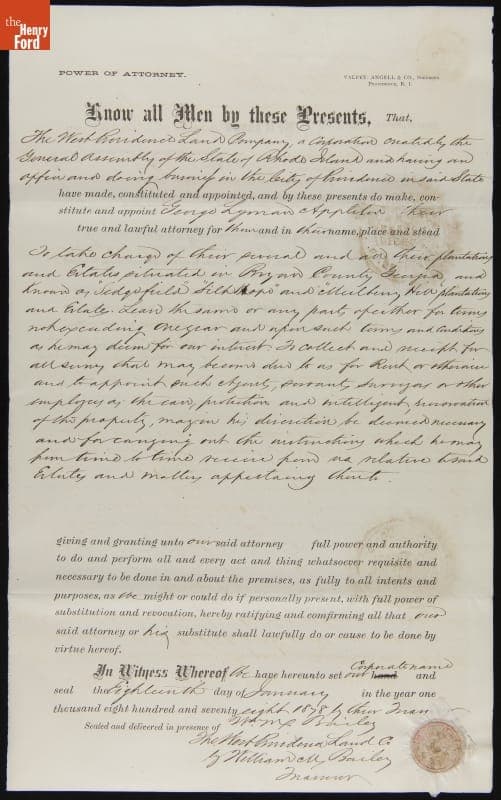 the
Henry
Ford
POWER OF ATTORNEY.
VALPEY, ANGELL & CO., Stationers
Providence, R. I.
Know all Men by these Presents, That,
The West Providence Land Company, a Corporation created by the
General Assembly of the State of Rhode Island and having an
office and doing business in the City of Providence in said State
have made, constituted and appointed, and by these presents do make, con-
stitute and appoint George Lyman Appleton their
true and lawful attorney for them and in their name, place and stead
To take charge of their several and all their plantations
and Estates situated in Bryan County Georgia, and
known as, "Sedgefield" and "Mulberry Hill" plantations
and Estate. Lease the same or any part of either for terms
not exceeding one year and upon such terms and conditions
as he may deem for our interest To collect and receipt for
all sums that may become due to us for Rent or otherwise
and to appoint such Agents, servants, or other
employees as the care, protection and intelligent
of the property, may in his discretion be deemed necessary
and for carrying out the instructions which he may
from time to time receive from us relative to said
Estates and matters appertaining thereto.
giving and granting unto our said attorney full power and authority
to do and perform all and every act and thing whatsoever requisite and
necessary to be done in and about the premises, as fully to all intents and
purposes, as we might or could do if personally present, with full power of
substitution and revocation, hereby ratifying and confirming all that our
said attorney or his substitute shall lawfully do or cause to be done by
virtue hereof.
In Witness Whereof We have hereunto set our hand Corporate name and
seal the Eighteenth day of January in the year one
thousand eight hundred and seventy eight 1878 by their
Wm M. Bailey
Sealed and delivered in presence of
The West Providence Land Co
By William M Bailey